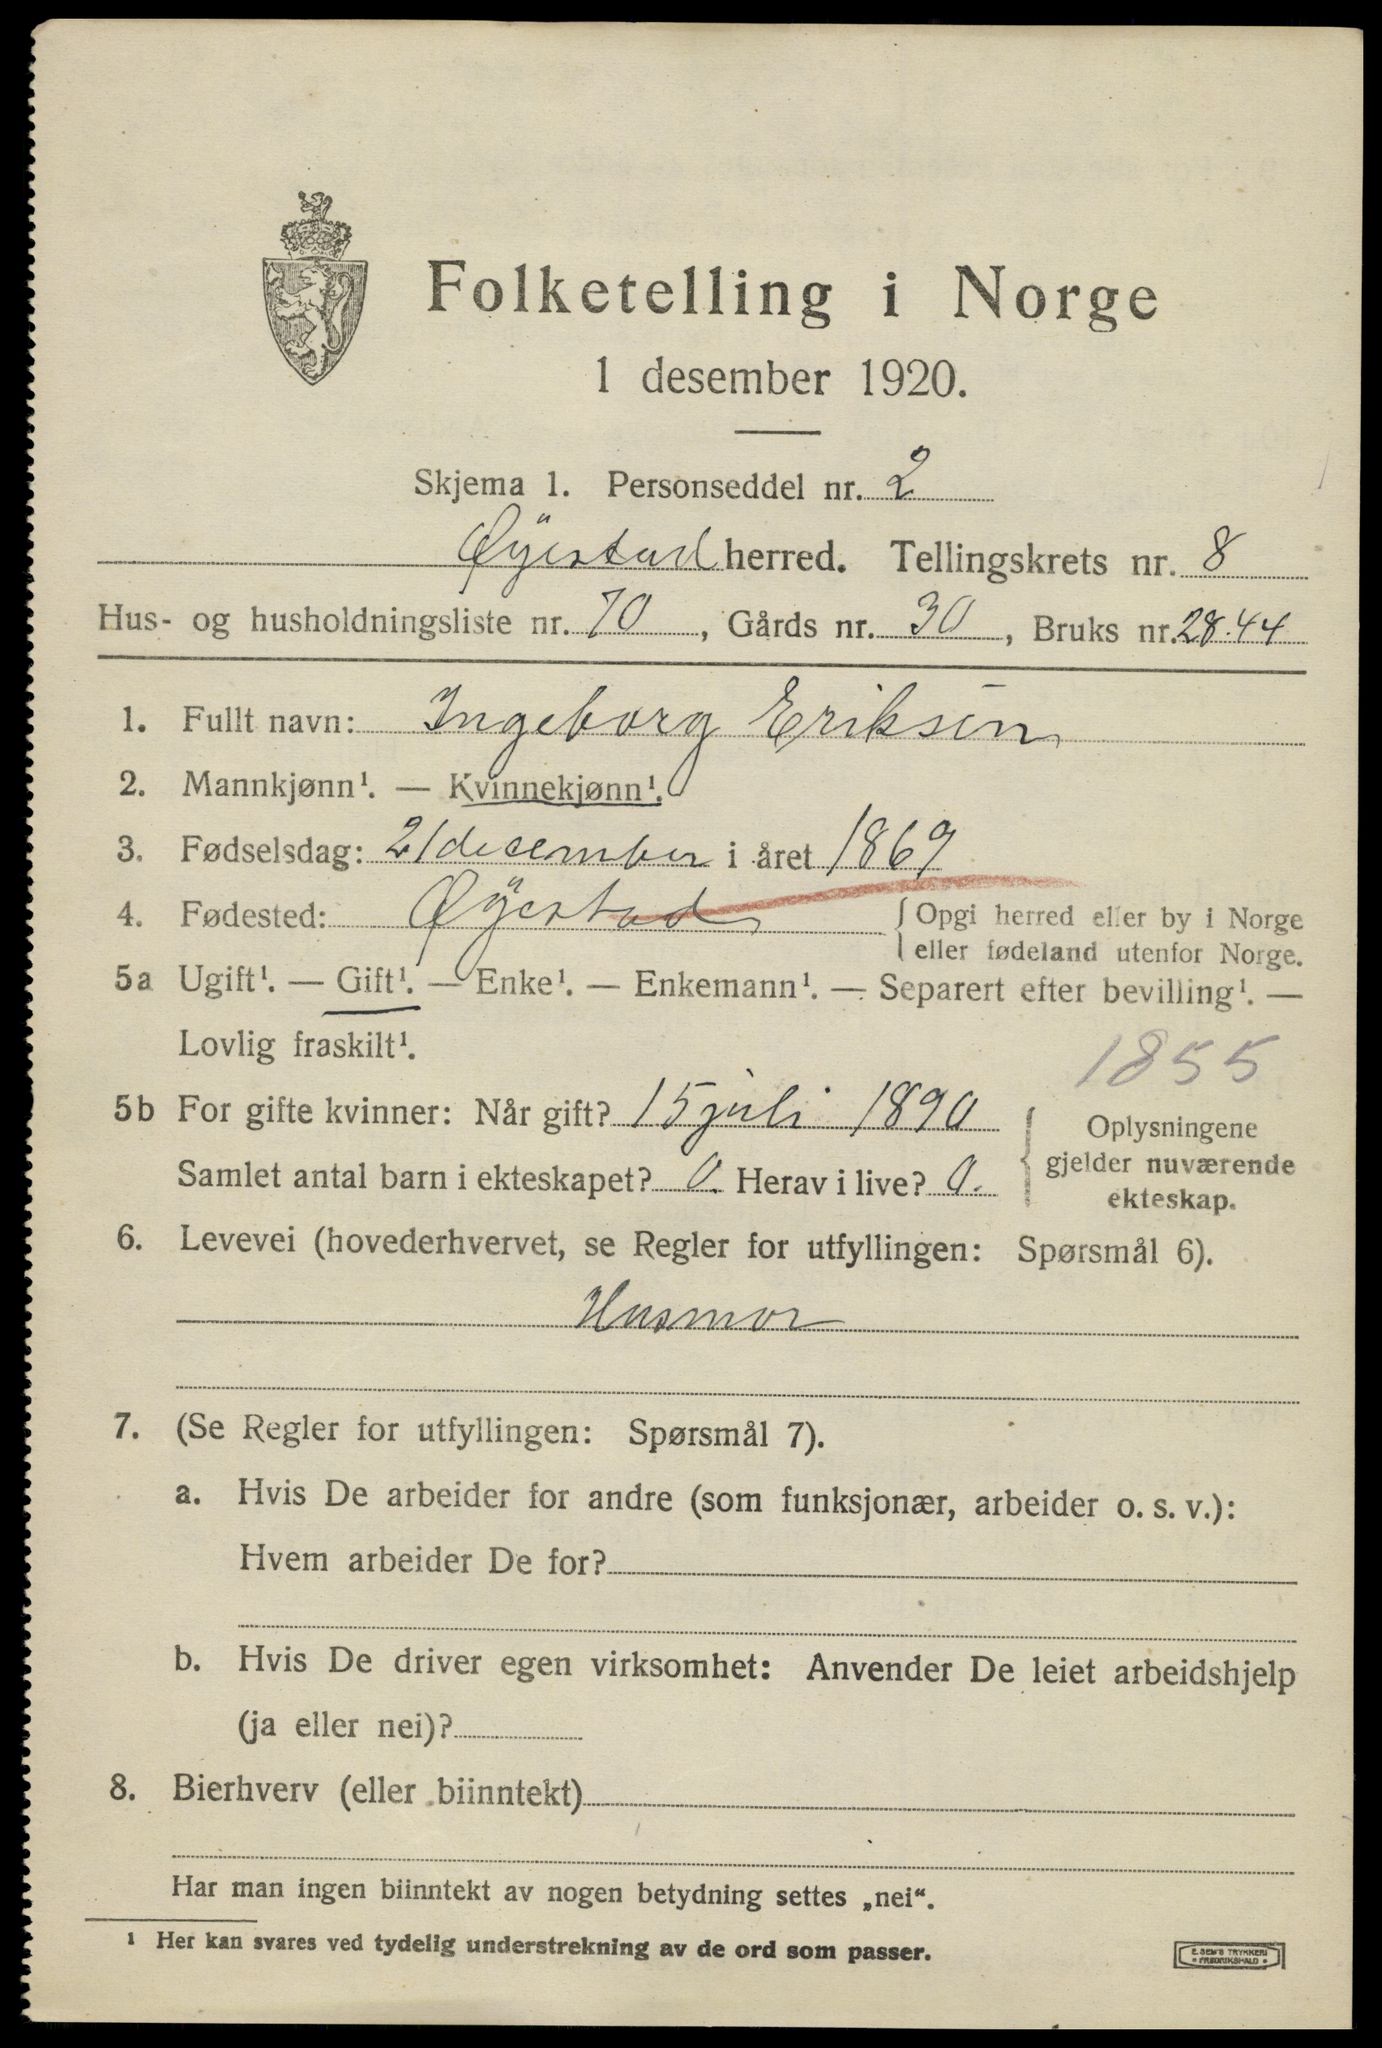 Folketelling i Norge
1 desember 1920.
Skjema 1. Personseddel nr. 2
Øyestad herred. Tellingskrets nr. 8
Hus- og husholdningsliste nr. 70, Gårds nr. 30, Bruks nr. 28.44
1. Fullt navn: Ingeborg Eriksen
2. Mannkjønn¹. — Kvinnekjønn¹.
3. Fødselsdag: 21 december i året 1869
4. Fødested: Øyestad { Opgi herred eller by i Norge
eller fødeland utenfor Norge.
5a Ugift¹. — Gift¹. — Enke¹. — Enkemann¹. — Separert efter bevilling¹. —
Lovlig fraskilt¹.
1855
5b For gifte kvinner: Når gift? 15 juli 1890
Samlet antal barn i ekteskapet? 0. Herav i live? 0.
{ Oplysningene
gjelder nuværende
ekteskap.
6. Levevei (hovederhvervet, se Regler for utfyllingen: Spørsmål 6).
Husmor
7. (Se Regler for utfyllingen: Spørsmål 7).
a. Hvis De arbeider for andre (som funksjonær, arbeider o. s. v.):
Hvem arbeider De for?
b. Hvis De driver egen virksomhet: Anvender De leiet arbeidshjelp
(ja eller nei)?
8. Bierhverv (eller biinntekt)
Har man ingen biinntekt av nogen betydning settes „nei“.
¹ Her kan svares ved tydelig understrekning av de ord som passer.
E. SEM'S TRYKKERI
* FREDRIKSHALD *